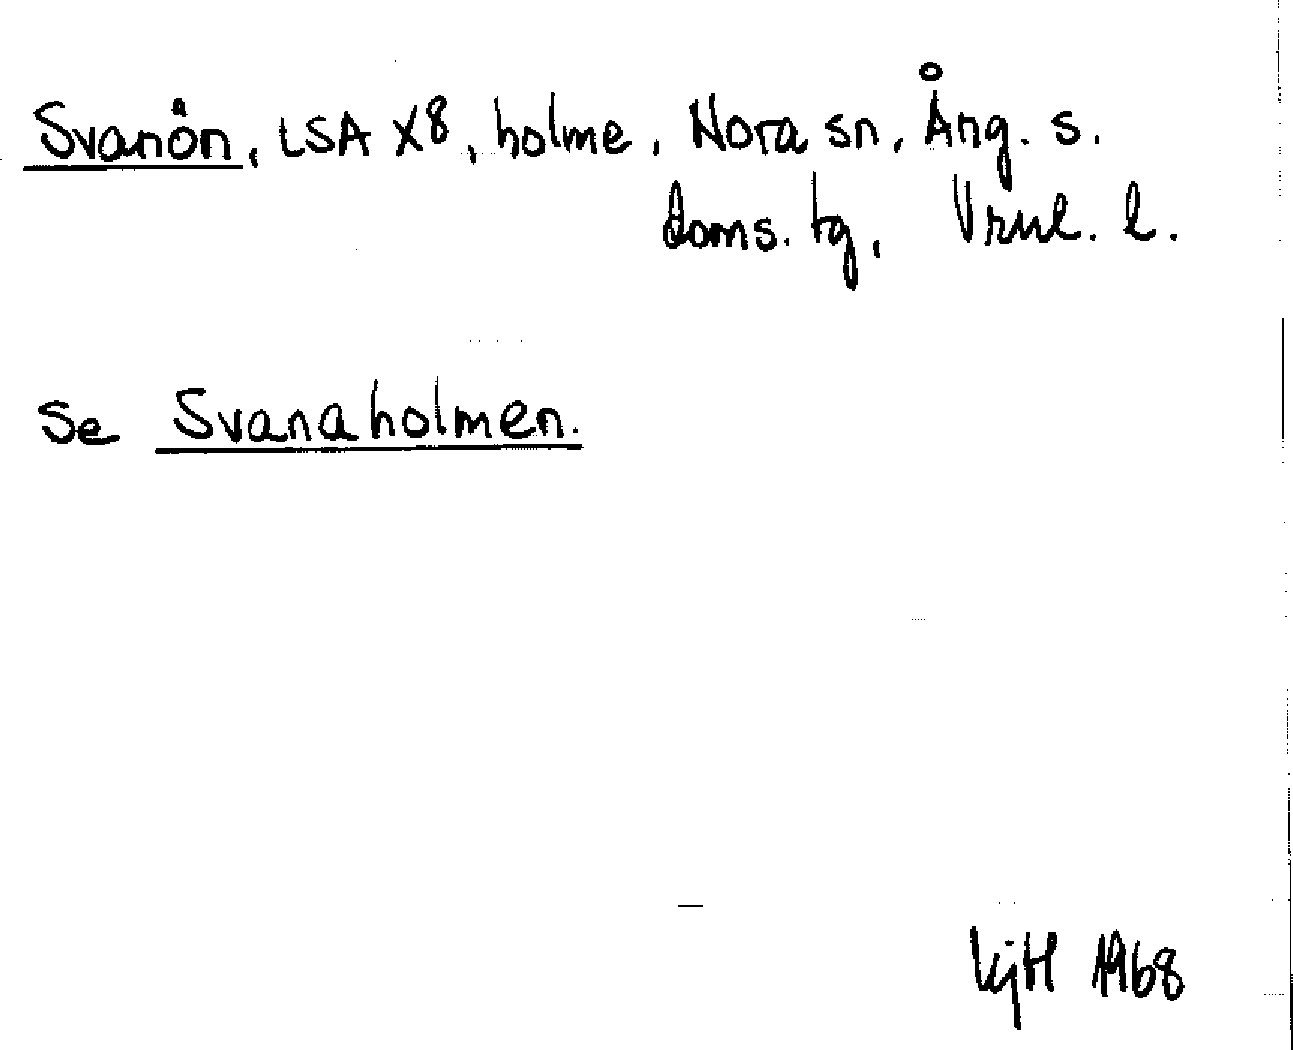 Svanön, LSA X8, holme, Nora sn, Ång. s.
doms. tg, Vrnl. l.
Se Svanaholmen.
KjH 1968